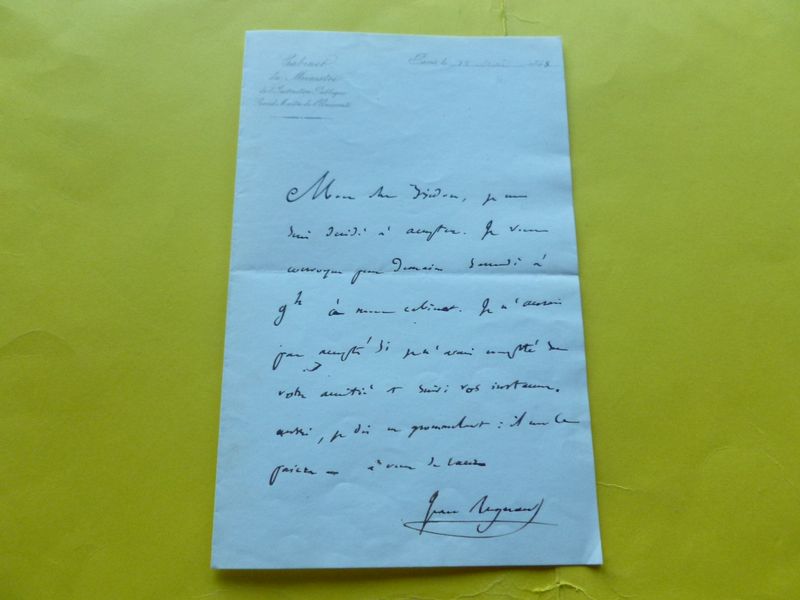 Cabinet
du Ministre
de l'Instruction Publique
Grand Maître de l'Université
Paris le 1848
Mon cher je me
suis décidé à accepter. Je vous
convoque pour Demain Samedi à
9h à mon cabinet. Je n'aurais
pas accepté si je n'avais compté sur
votre amitié et suivi vos instances.
aussi, je dis en
à vous de cœur
Jean Reynaud